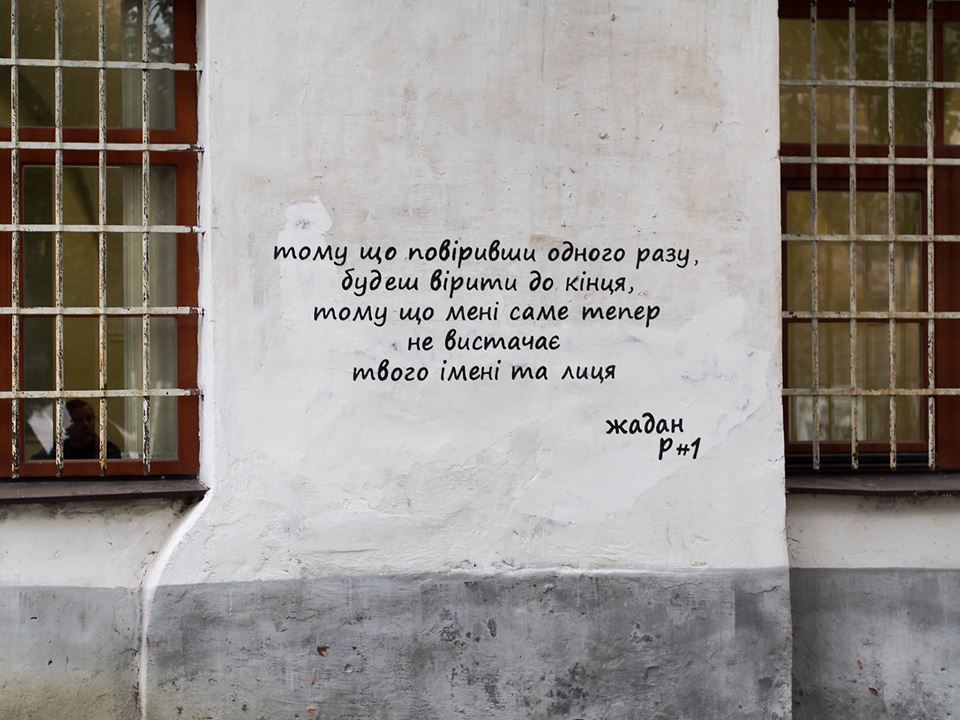 тому що повіривши одного разу,
будеш вірити до кінця,
тому що мені саме тепер
не вистачає
твого імені та лиця
жадан
Р#1